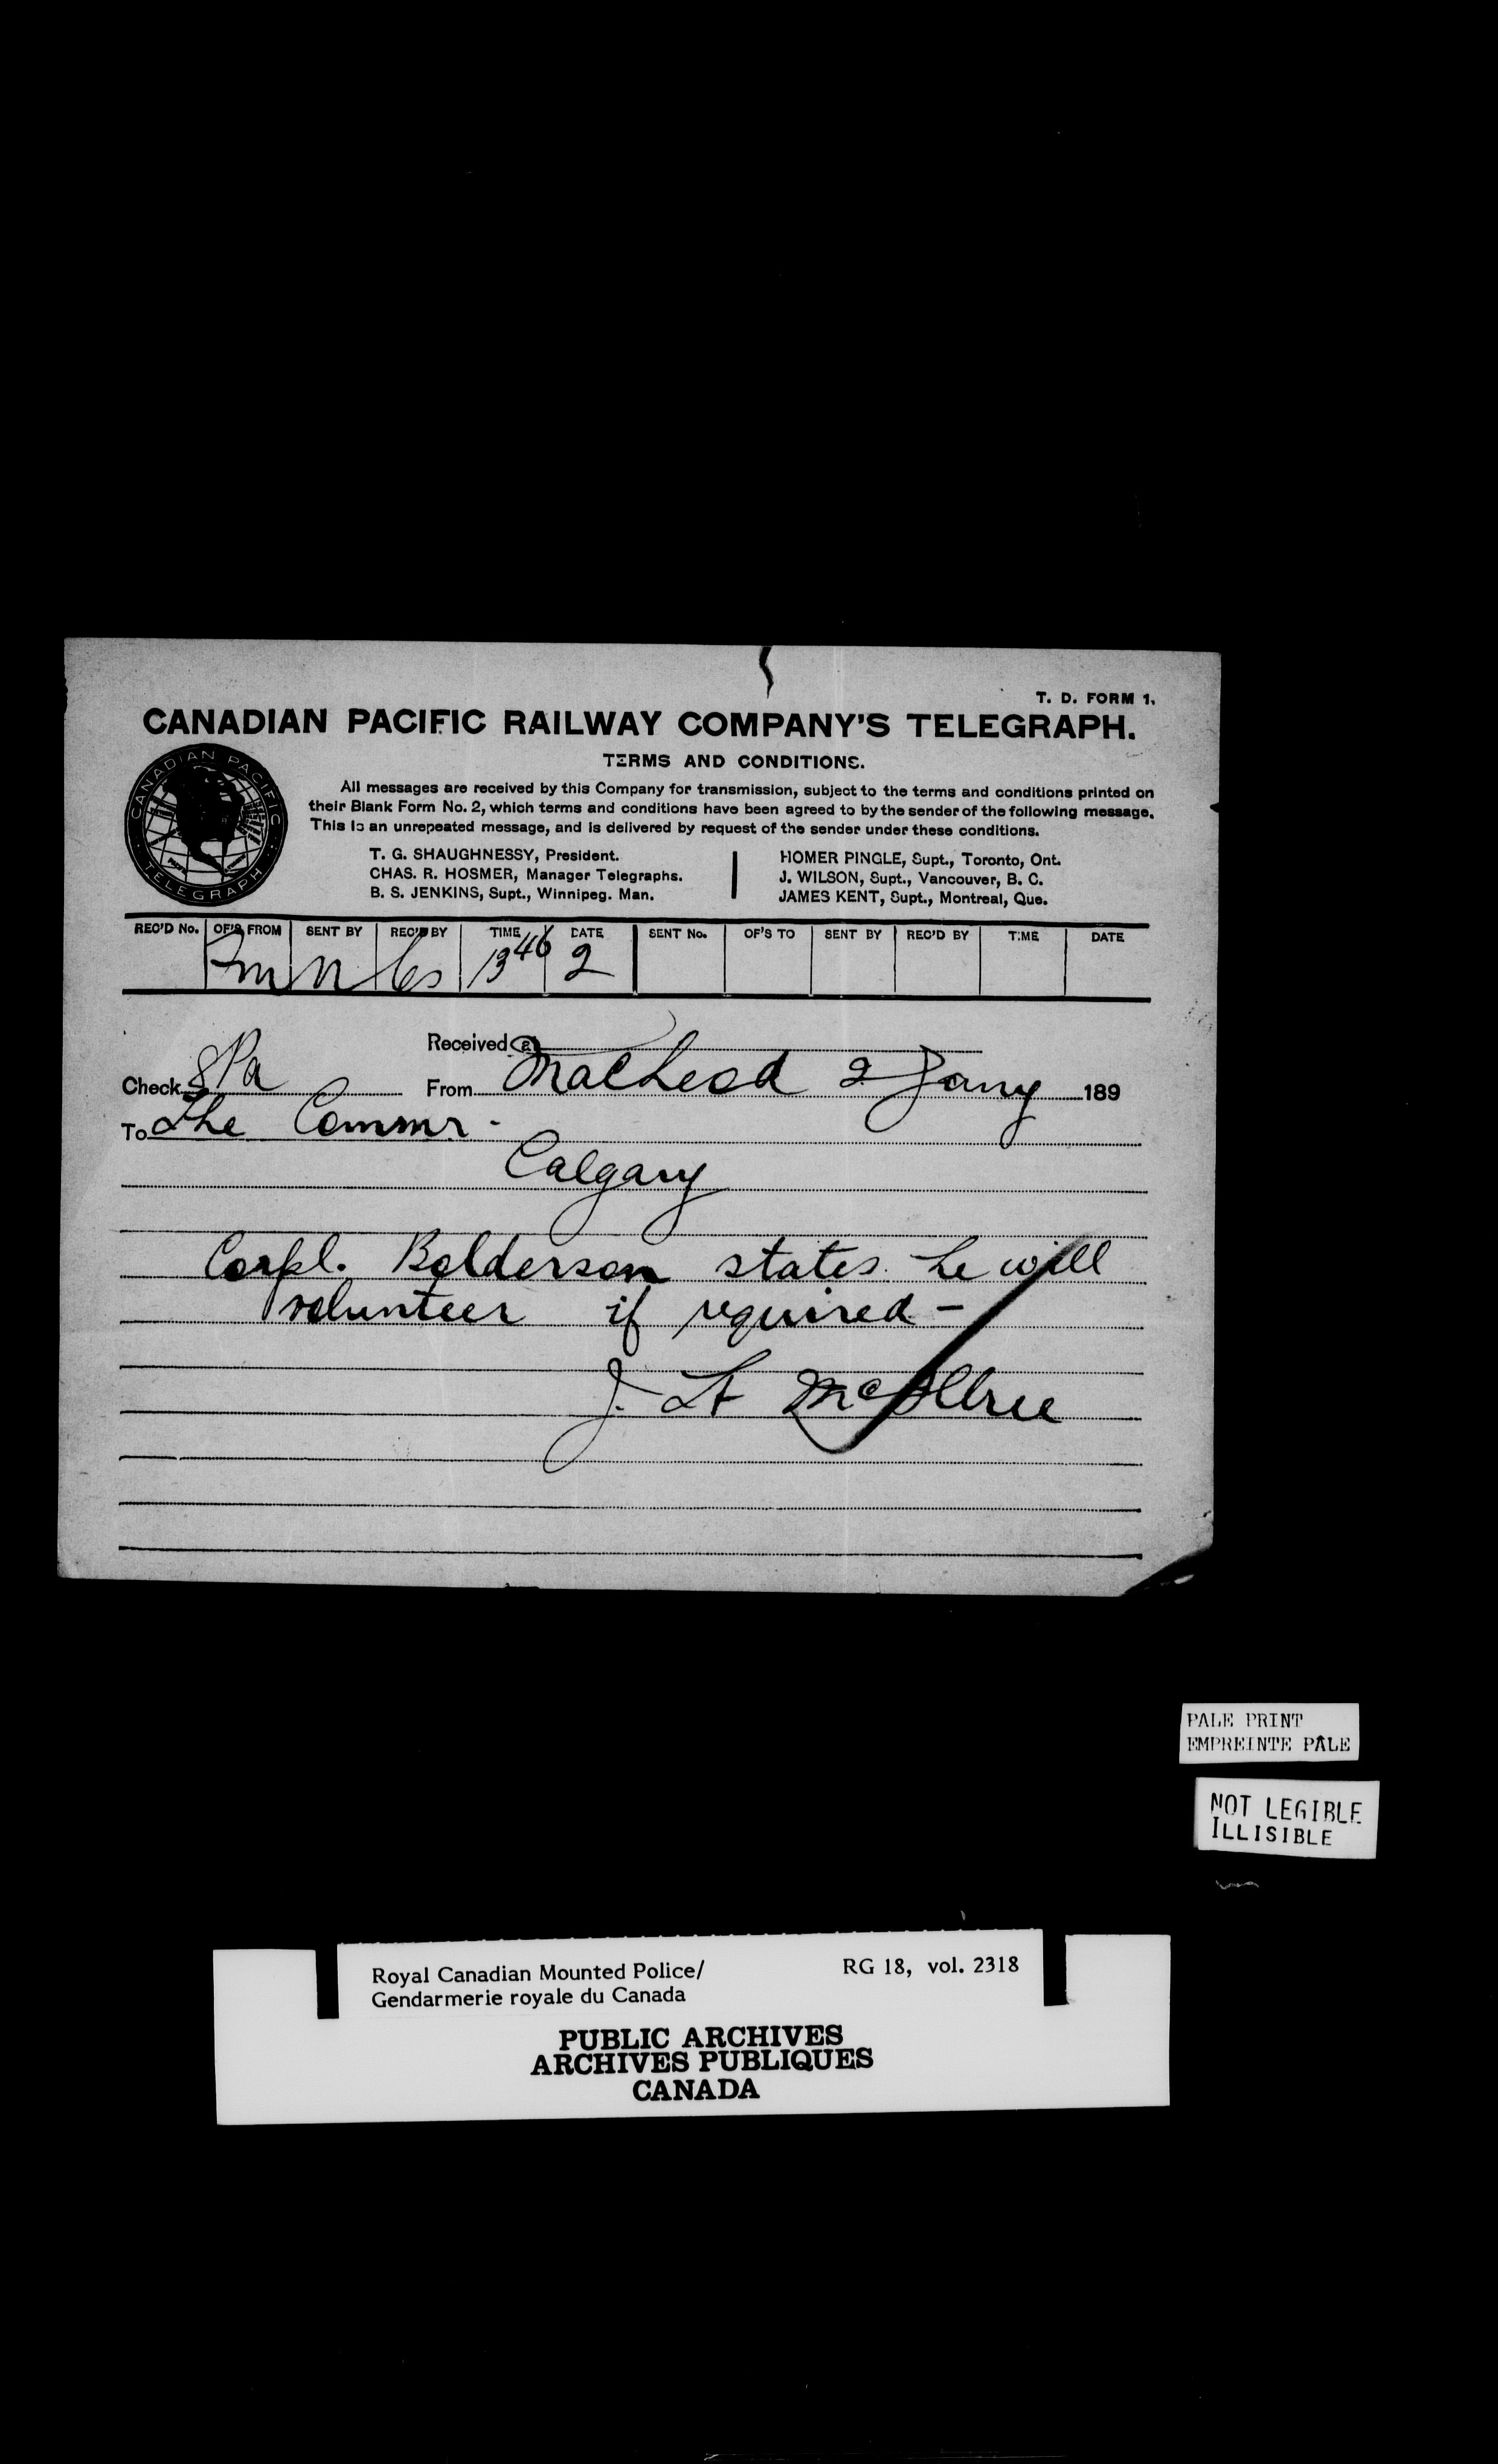 T. D. FORM 1.
CANADIAN PACIFIC RAILWAY COMPANY'S TELEGRAPH.
TERMS AND CONDITIONS.
CANADIAN PACIFIC
TELEGRAPH
All messages are received by this Company for transmission, subject to the terms and conditions printed on
their Blank Form No. 2, which terms and conditions have been agreed to by the sender of the following message.
This is an unrepeated message, and is delivered by request of the sender under these conditions.
T. G. SHAUGHNESSY, President.
CHAS. R. HOSMER, Manager Telegraphs.
B. S. JENKINS, Supt., Winnipeg. Man.
HOMER PINGLE, Supt., Toronto, Ont.
J. WILSON, Supt., Vancouver, B. C.
JAMES KENT, Supt., Montreal, Que.
REC'D No. OF'S FROM SENT BY REC'D BY TIME DATE SENT No. OF'S TO SENT BY REC'D BY TIME DATE
1346 2
Received
Check 8 Pa From MacLeod 2 Jany 189
To The Commr.
Calgary
Corpl. Bolderson states he will
volunteer if required -
PALE PRINT
EMPREINTE PÂLE
NOT LEGIBLE
ILLISIBLE
Royal Canadian Mounted Police/
Gendarmerie royale du Canada
RG 18, vol. 2318
PUBLIC ARCHIVES
ARCHIVES PUBLIQUES
CANADA